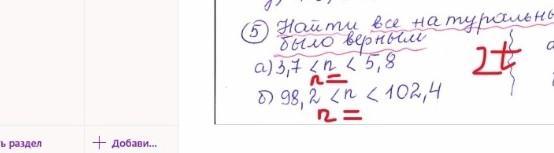 ⑤ Найти все натуральны
было верным
а) 3,7 < n < 5,8
n =
2t
б) 98,2 < n < 102,4
n =
ь раздел
+ Добави...